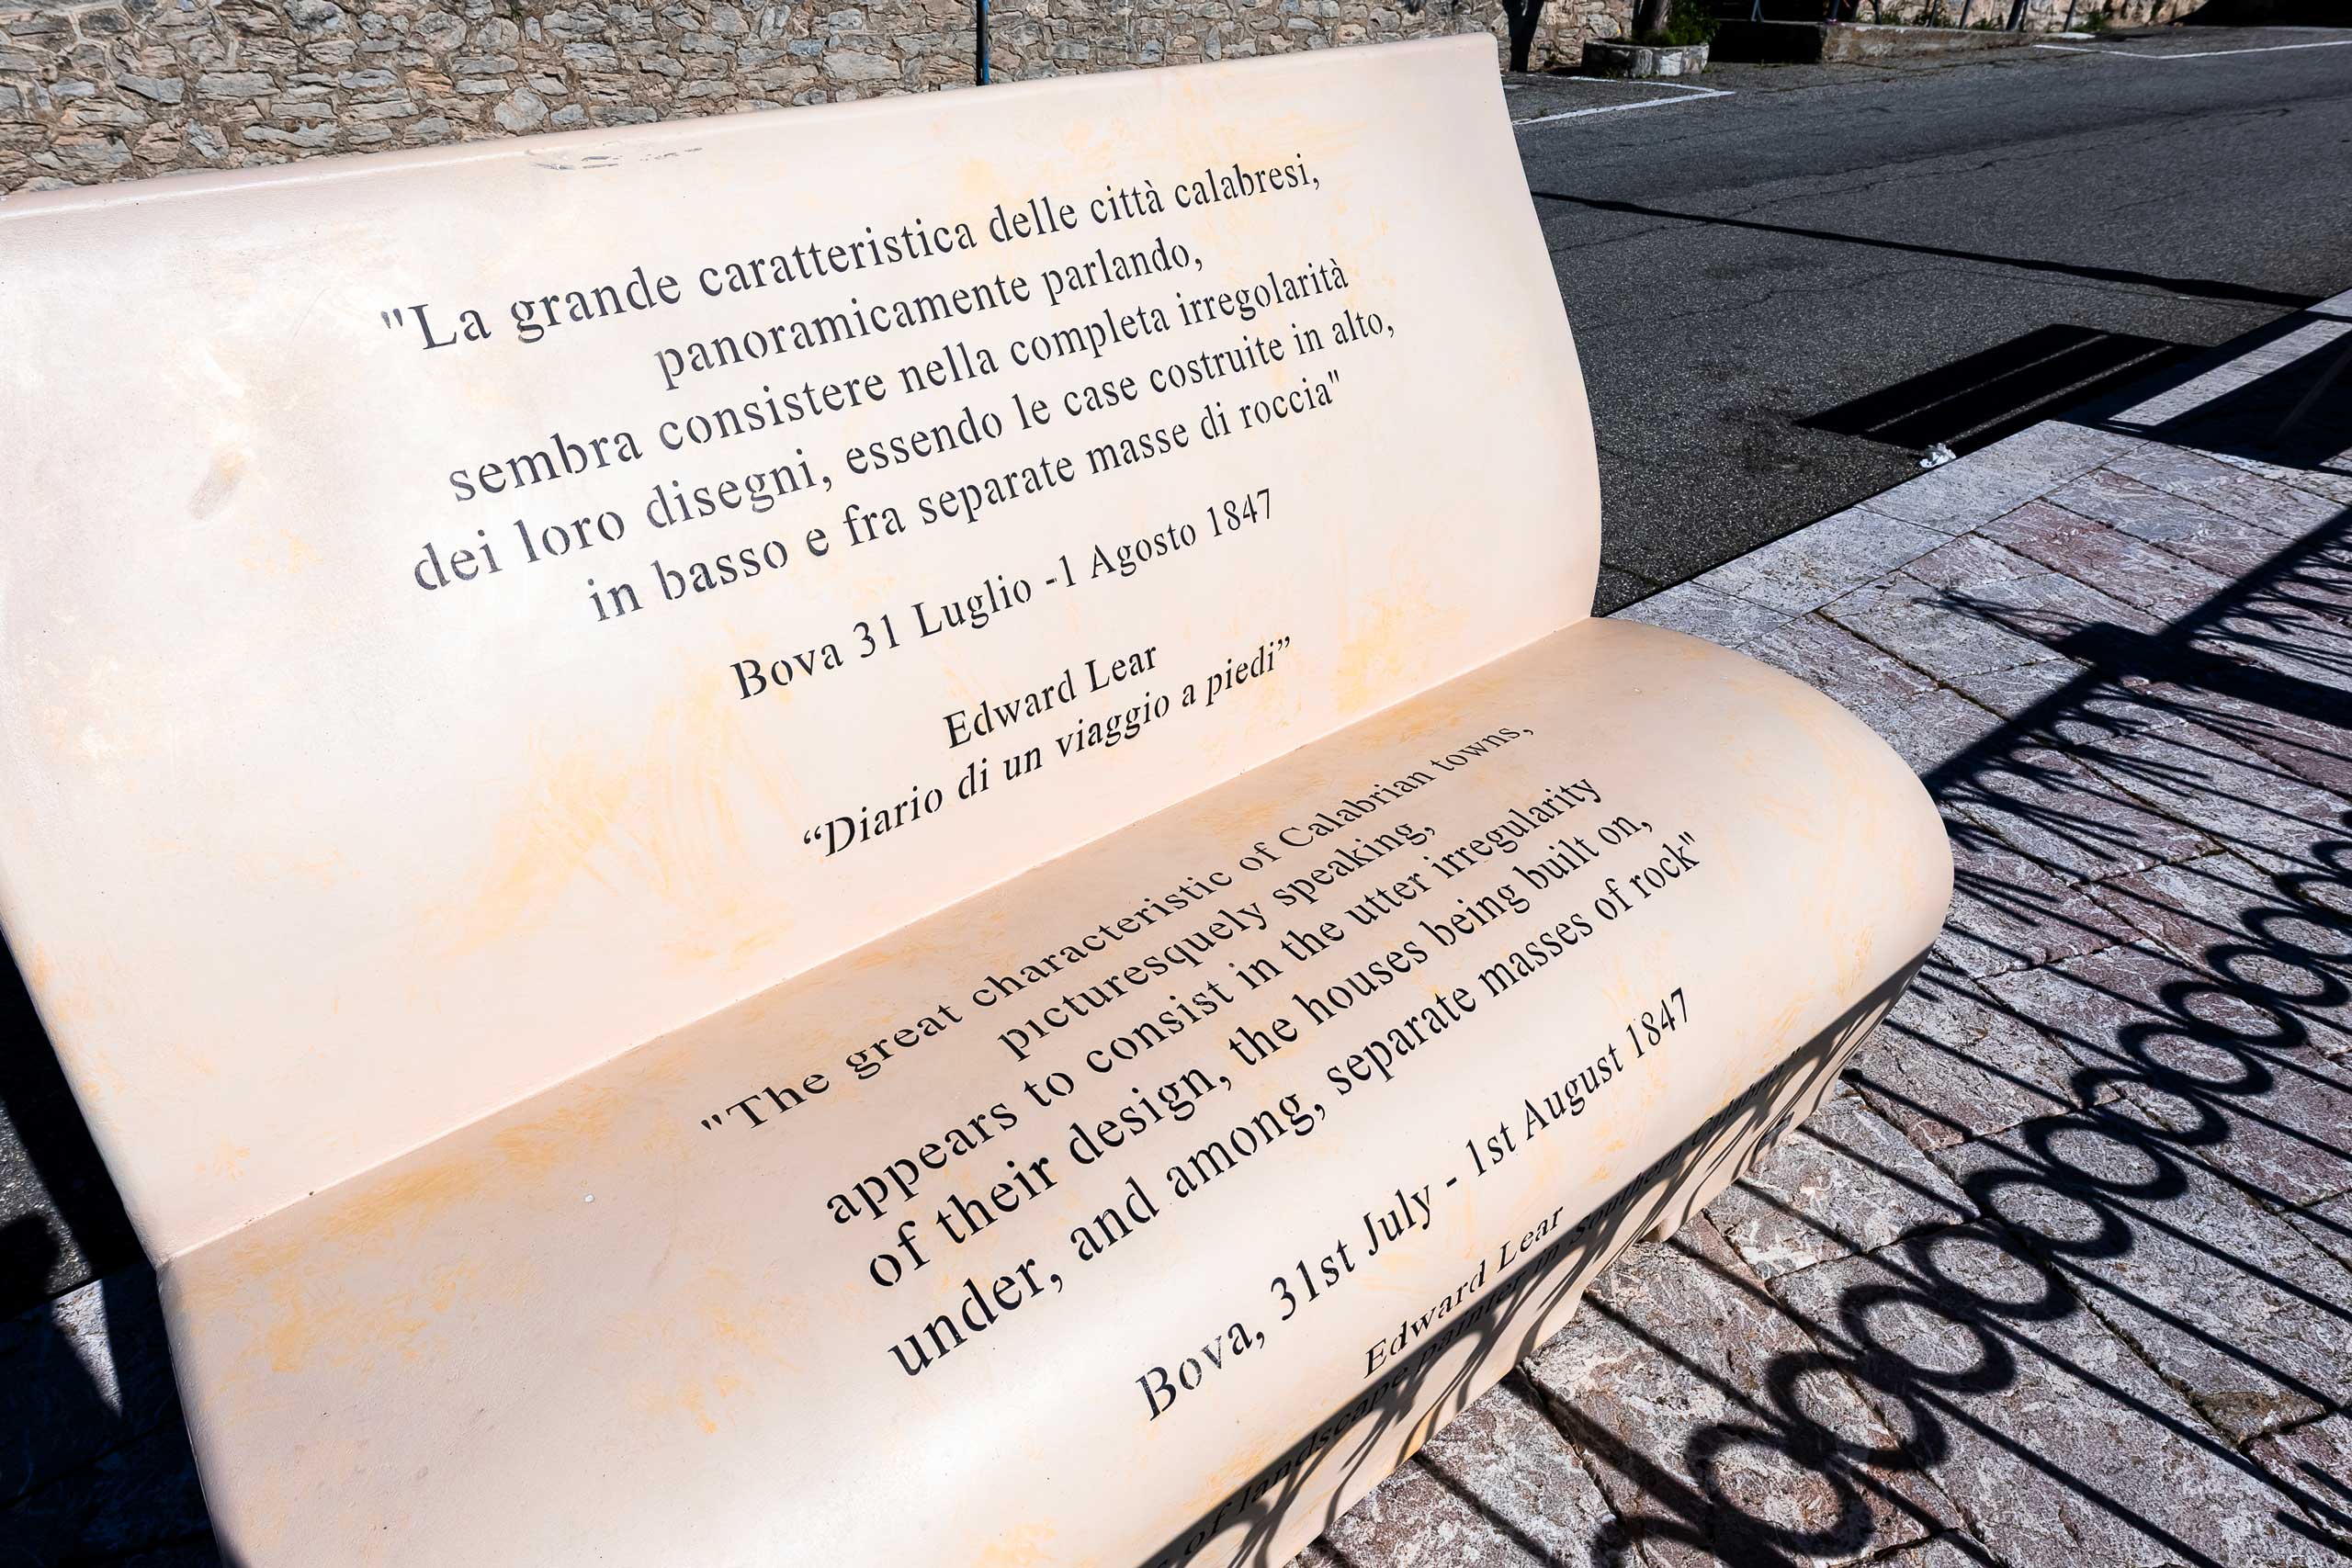 "La grande caratteristica delle città calabresi,
panoramicamente parlando,
sembra consistere nella completa irregolarità
dei loro disegni, essendo le case costruite in alto,
in basso e fra separate masse di roccia"
Bova 31 Luglio -1 Agosto 1847
Edward Lear
“Diario di un viaggio a piedi”
"The great characteristic of Calabrian towns,
picturesquely speaking,
appears to consist in the utter irregularity
of their design, the houses being built on,
under, and among, separate masses of rock"
Bova, 31st July - 1st August 1847
Edward Lear
of landscape painter in Southern